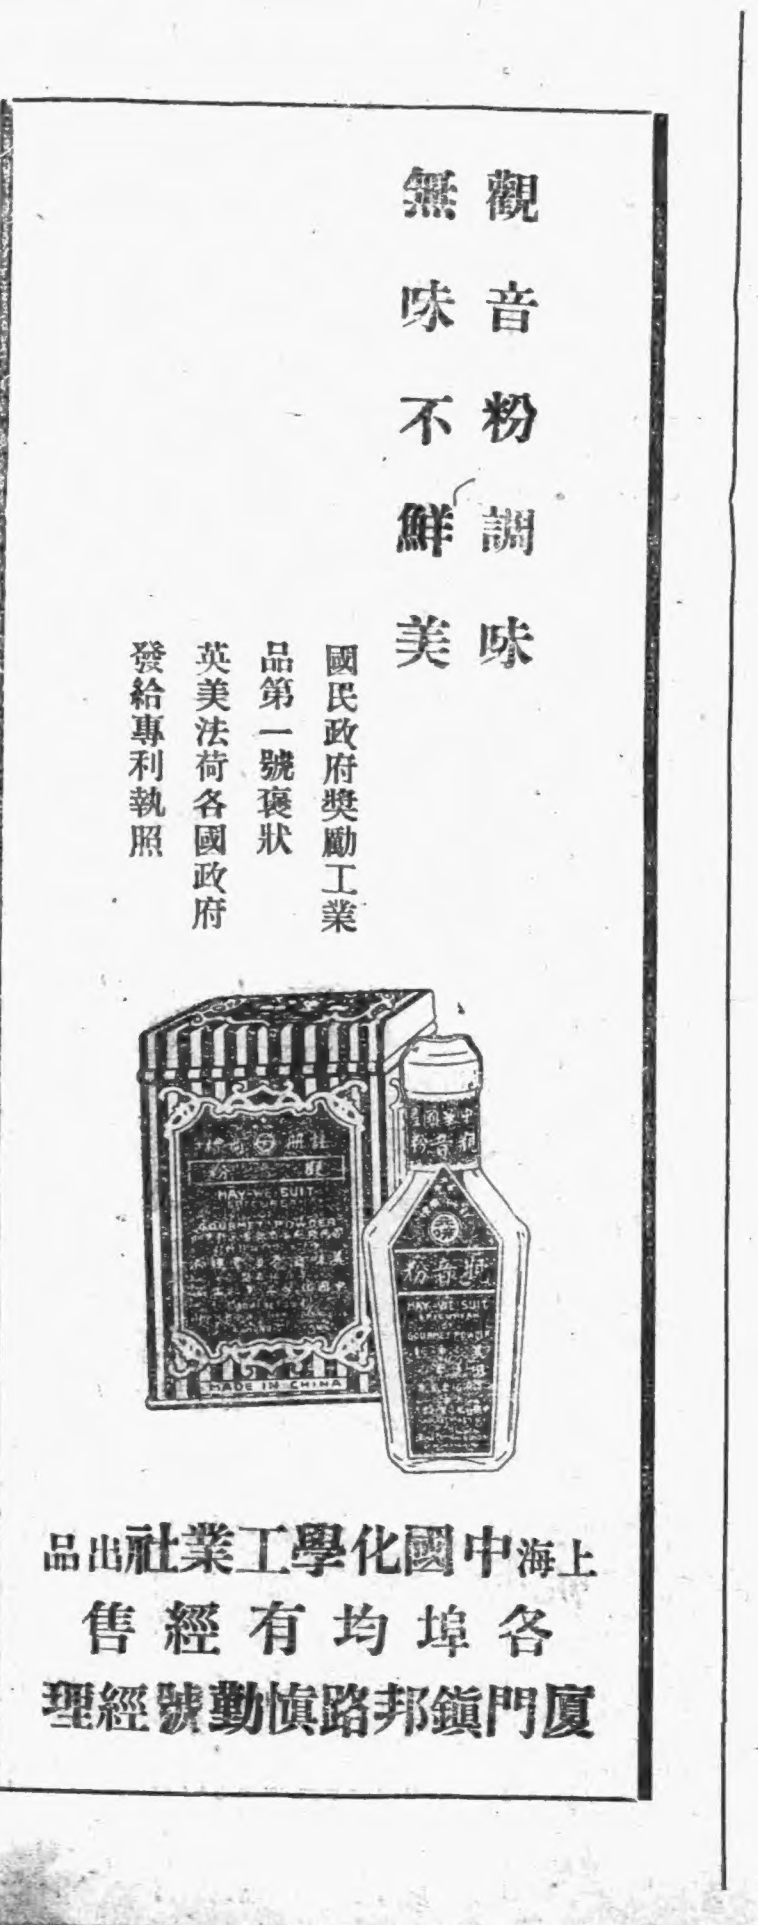 觀音粉調味
無味不鮮美
國民政府獎勵工業
品第一號褒狀
英美法荷各國政府
發給專利執照
註冊商標
觀音粉
MAY-WE-SUIT
EPICUREAN
GOURMET-POWDER
MADE IN CHINA
觀音粉
觀音粉
MAY-WE SUIT
EPICUREAN
GOURMET POWDER
上海中國化學工業社出品
各埠均有經售
廈門鎮邦路慎勤號經理